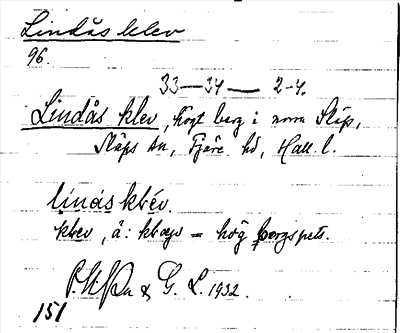 Lindås klev
96.
33—34 — 2-4.
Lindås klev, högt berg i norra Släp,
Släps sn, Fjäre hd, Hall. l.
linås klév.
klev, ä: kläpp = hög bergspets.
& G. L. 1932.
151